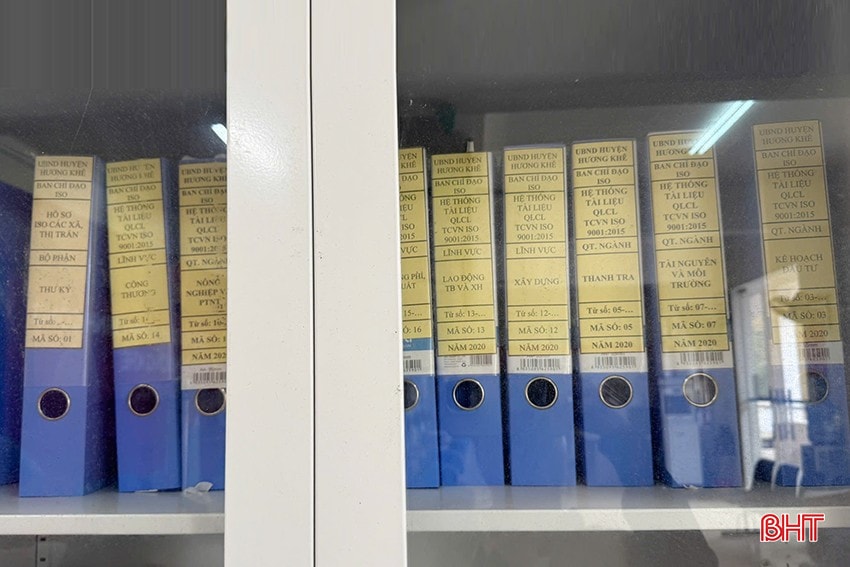 UBND HUYỆN
HƯƠNG KHÊ
BAN CHỈ ĐẠO
ISO
HỒ SƠ
ISO CÁC XÃ,
THỊ TRẤN
BỘ PHẬN
THƯ KÝ
Từ số:
MÃ SỐ: 01
UBND HUYỆN
HƯƠNG KHÊ
BAN CHỈ ĐẠO
ISO
HỆ THỐNG
TÀI LIỆU
QLCL
TCVN ISO
9001:2015
LĨNH VỰC
CÔNG
THƯƠNG
Từ số:
MÃ SỐ: 14
UBND HUYỆN
HƯƠNG KHÊ
BAN CHỈ ĐẠO
ISO
HỆ THỐNG
TÀI LIỆU
QLCL
TCVN ISO
9001:2015
QT. NGÀNH
NÔNG
NGHIỆP
PTNT
Từ số: 10
MÃ SỐ:
NĂM 202
HUYỆN
KHÊ
ĐẠO
THỐNG
LIỆU
ISO
2015
VỰC
PHÍ,
15-...
16
UBND HUYỆN
HƯƠNG KHÊ
BAN CHỈ ĐẠO
ISO
HỆ THỐNG
TÀI LIỆU
QLCL
TCVN ISO
9001:2015
LĨNH VỰC
LAO ĐỘNG
TB VÀ XH
Từ số: 13-...
MÃ SỐ: 13
NĂM 2020
UBND HUYỆN
HƯƠNG KHÊ
BAN CHỈ ĐẠO
ISO
HỆ THỐNG
TÀI LIỆU
QLCL
TCVN ISO
9001:2015
LĨNH VỰC
XÂY DỰNG
Từ số: 12-...
MÃ SỐ: 12
NĂM 2020
UBND HUYỆN
HƯƠNG KHÊ
BAN CHỈ ĐẠO
ISO
HỆ THỐNG
TÀI LIỆU
QLCL
TCVN ISO
9001:2015
QT. NGÀNH
THANH TRA
Từ số: 05-...
MÃ SỐ: 05
NĂM 2020
UBND HUYỆN
HƯƠNG KHÊ
BAN CHỈ ĐẠO
ISO
HỆ THỐNG
TÀI LIỆU
QLCL
TCVN ISO
9001:2015
QT. NGÀNH
TÀI NGUYÊN
VÀ MÔI
TRƯỜNG
Từ số: 07-...
MÃ SỐ: 07
NĂM 2020
UBND HUYỆN
HƯƠNG KHÊ
BAN CHỈ ĐẠO
ISO
HỆ THỐNG
TÀI LIỆU
QLCL
TCVN ISO
9001:2015
QT. NGÀNH
KẾ HOẠCH
ĐẦU TƯ
Từ số: 03-...
MÃ SỐ: 03
NĂM 2020
BHT